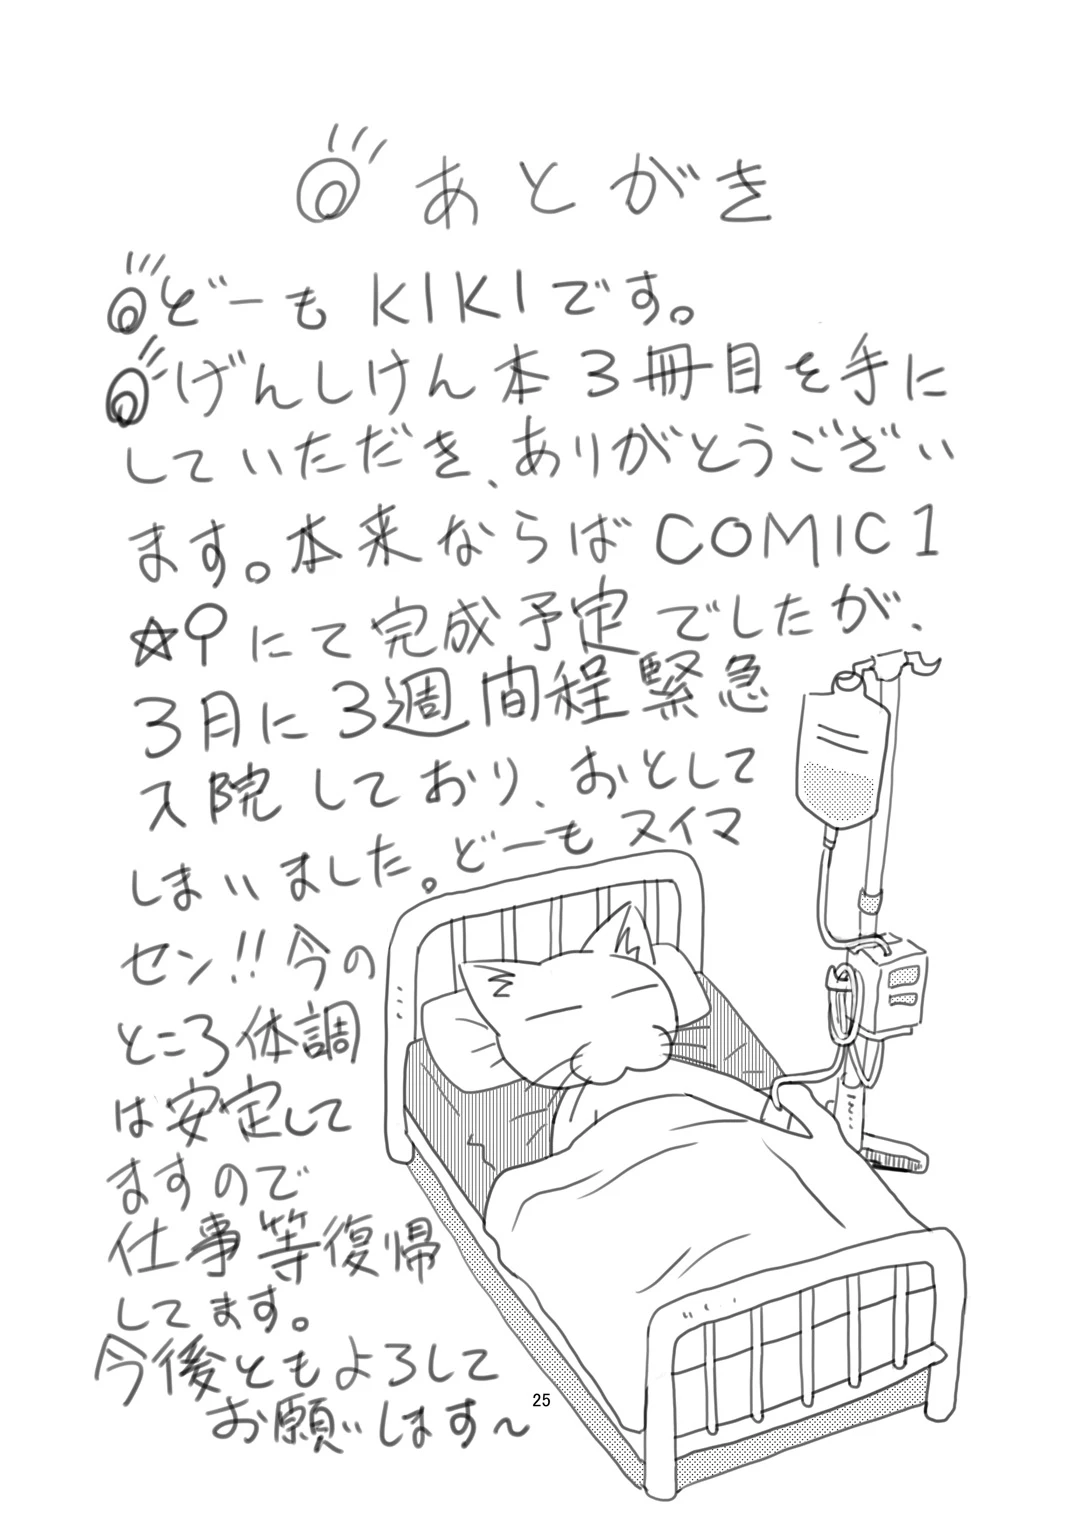 あとがき
どーもKIKIです。
げんしけん本3冊目を手に
していただき、ありがとうござい
ます。本来ならばCOMIC1
☆9にて完成予定でしたが、
3月に3週間程緊急
入院しており、おとして
しまいました。どーもスイマ
セン!!今の
ところ体調
は安定して
ますので
仕事等復帰
してます。
今後ともよろして
お願いします～
25